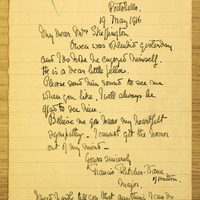 Portobello.
19 May 1916
My dear Mrs Skeffington
Owen was splendid yesterday
and I do hope he enjoyed himself.
He is a dear little fellow.
Please send him round to see me
when you like, I will always be
glad to see him
Believe me you have my heartfelt
sympathy - I cannot get the horror
out of my mind -
Yours sincerely
Francis Fletcher Vane
Major.